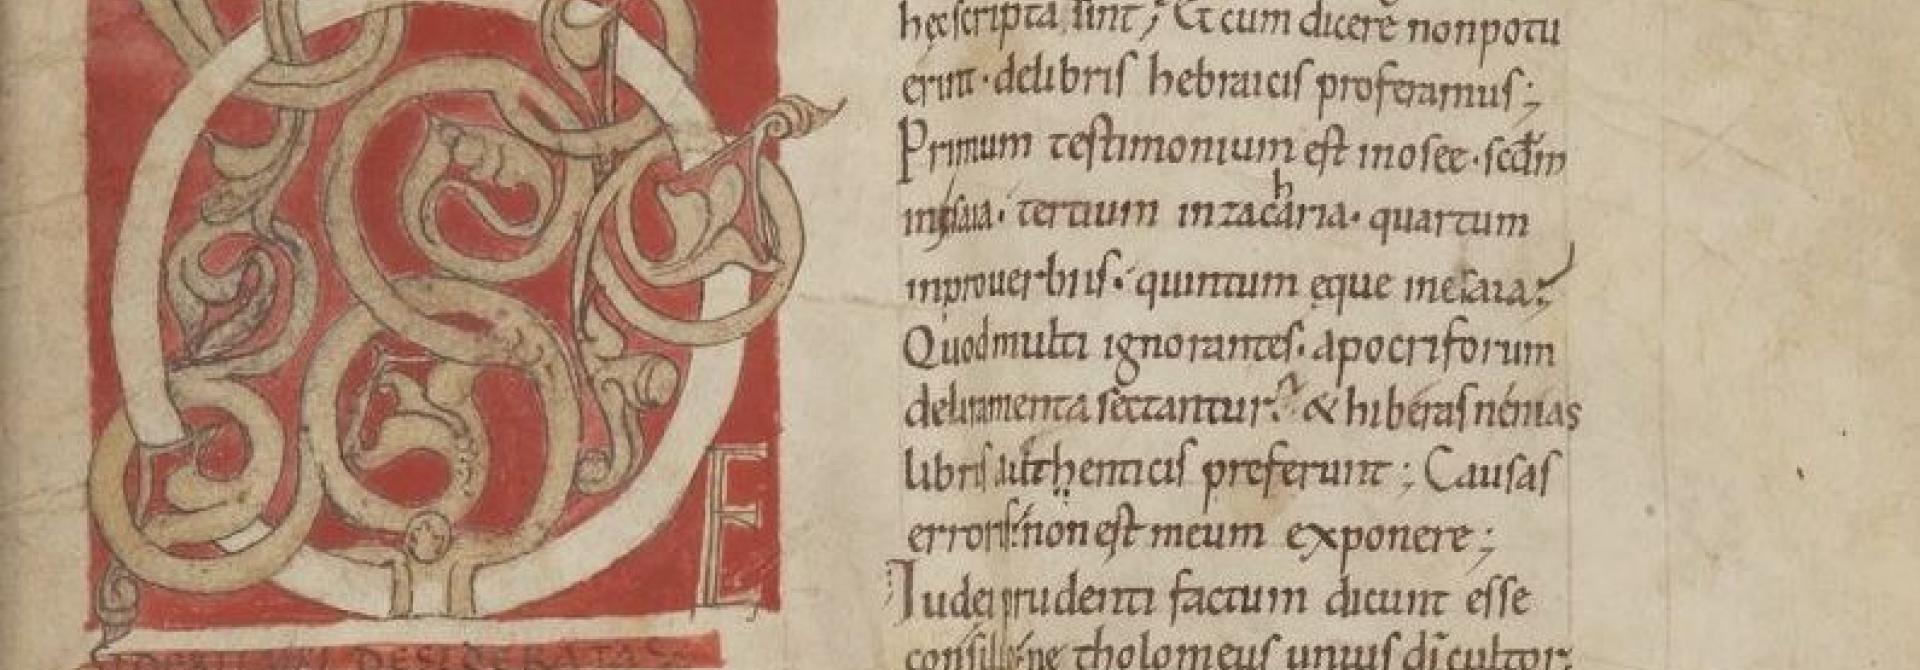 E
DESIDERATAS
hęc scripta sint; Et cum dicere non potu
erint · delibris hebraicis proferamus;
Primum testimonium est inosee · scđm
inysaia · tertium inzacharia · quartum
inprouerbiis · quintum ęque inesaia;
Quod multi ignorantes · apocriforum
deliramenta sectantur · & hiberas nénias
libris authenticis preferunt; Causas
erroris non est meum exponere;
Iudei prudenti factum dicunt esse
consilio ne tholomeus unius di cultor